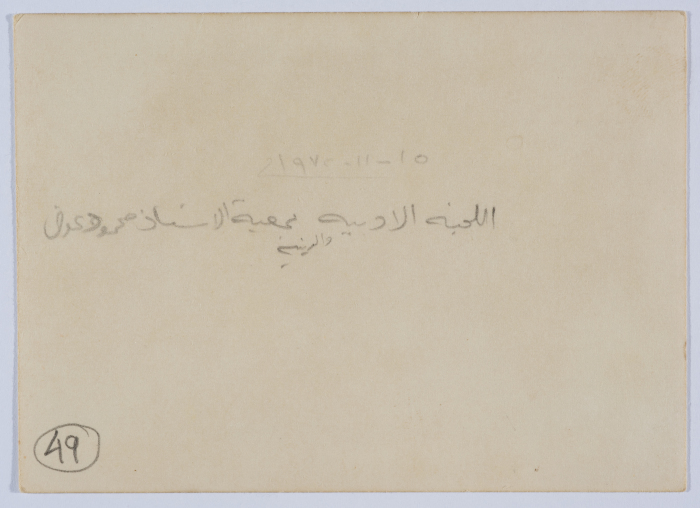 ١٥-١١-١٩٧٠
اللجنة الادبيه بمعية الاستاذ محمود عوض
والدينيه
49